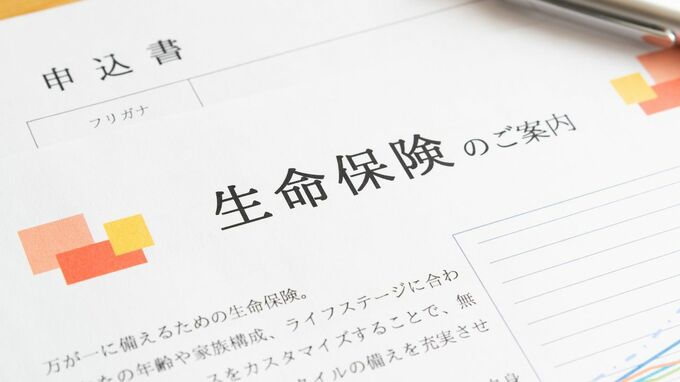 申込書
フリガナ
生命保険のご案内
万が一に備えるための生命保険。
たの年齢や家族構成、ライフステージに合わ
スをカスタマイズすることで、無
イルの備えを充実させ